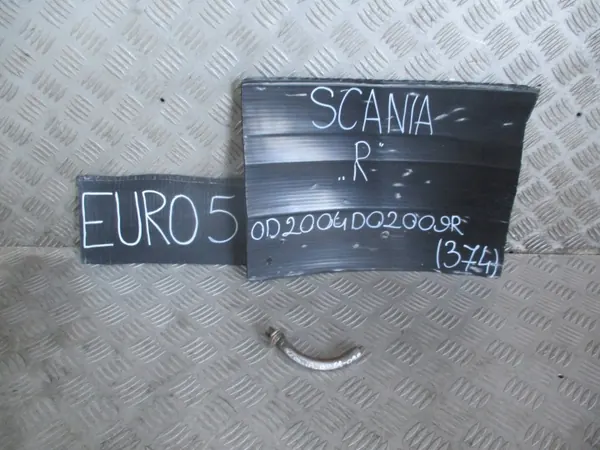 SCANIA
„R"
EURO 5
OD2004DO2009R
(374)